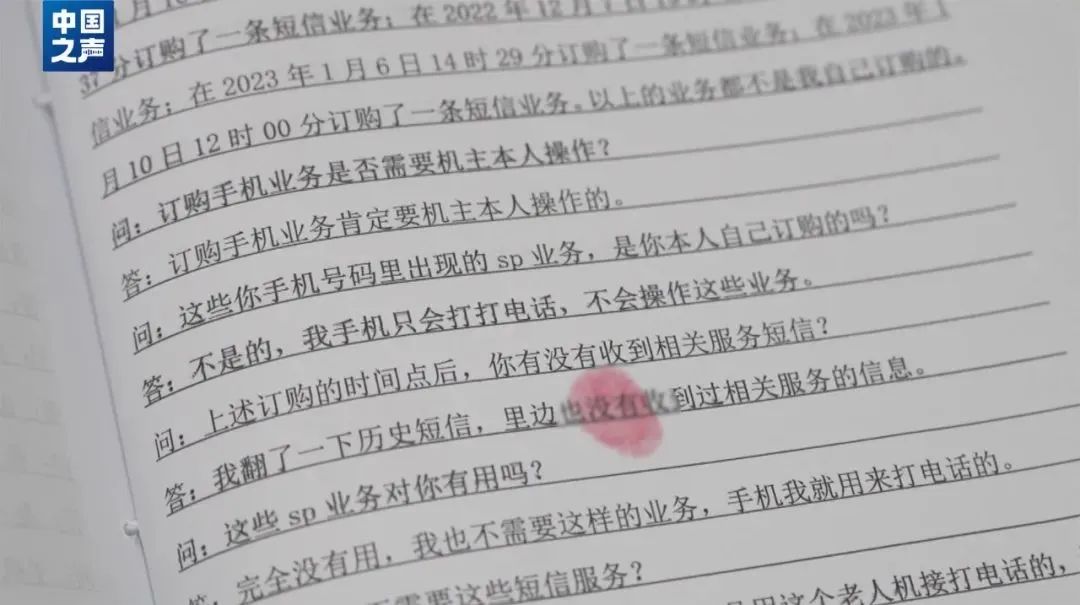 中国
之声
37 分订购了一条短信业务;在 2022 年 12 月 7 日
信业务;在 2023 年 1 月 6 日 14 时 29 分订购了一条短信业务;在 2023 年 1
月 10 日 12 时 00 分订购了一条短信业务。以上的业务都不是我自己订购的。
问:订购手机业务是否需要机主本人操作?
答:订购手机业务肯定要机主本人操作的。
问:这些你手机号码里出现的 sp 业务,是你本人自己订购的吗?
答:不是的,我手机只会打打电话,不会操作这些业务。
问:上述订购的时间点后,你有没有收到相关服务短信?
答:我翻了一下历史短信,里边也没有收到过相关服务的信息。
问:这些 sp 业务对你有用吗?
答:完全没有用,我也不需要这样的业务,手机我就用来打电话的。
需要这些短信服务?
用这个老人机接打电话的,